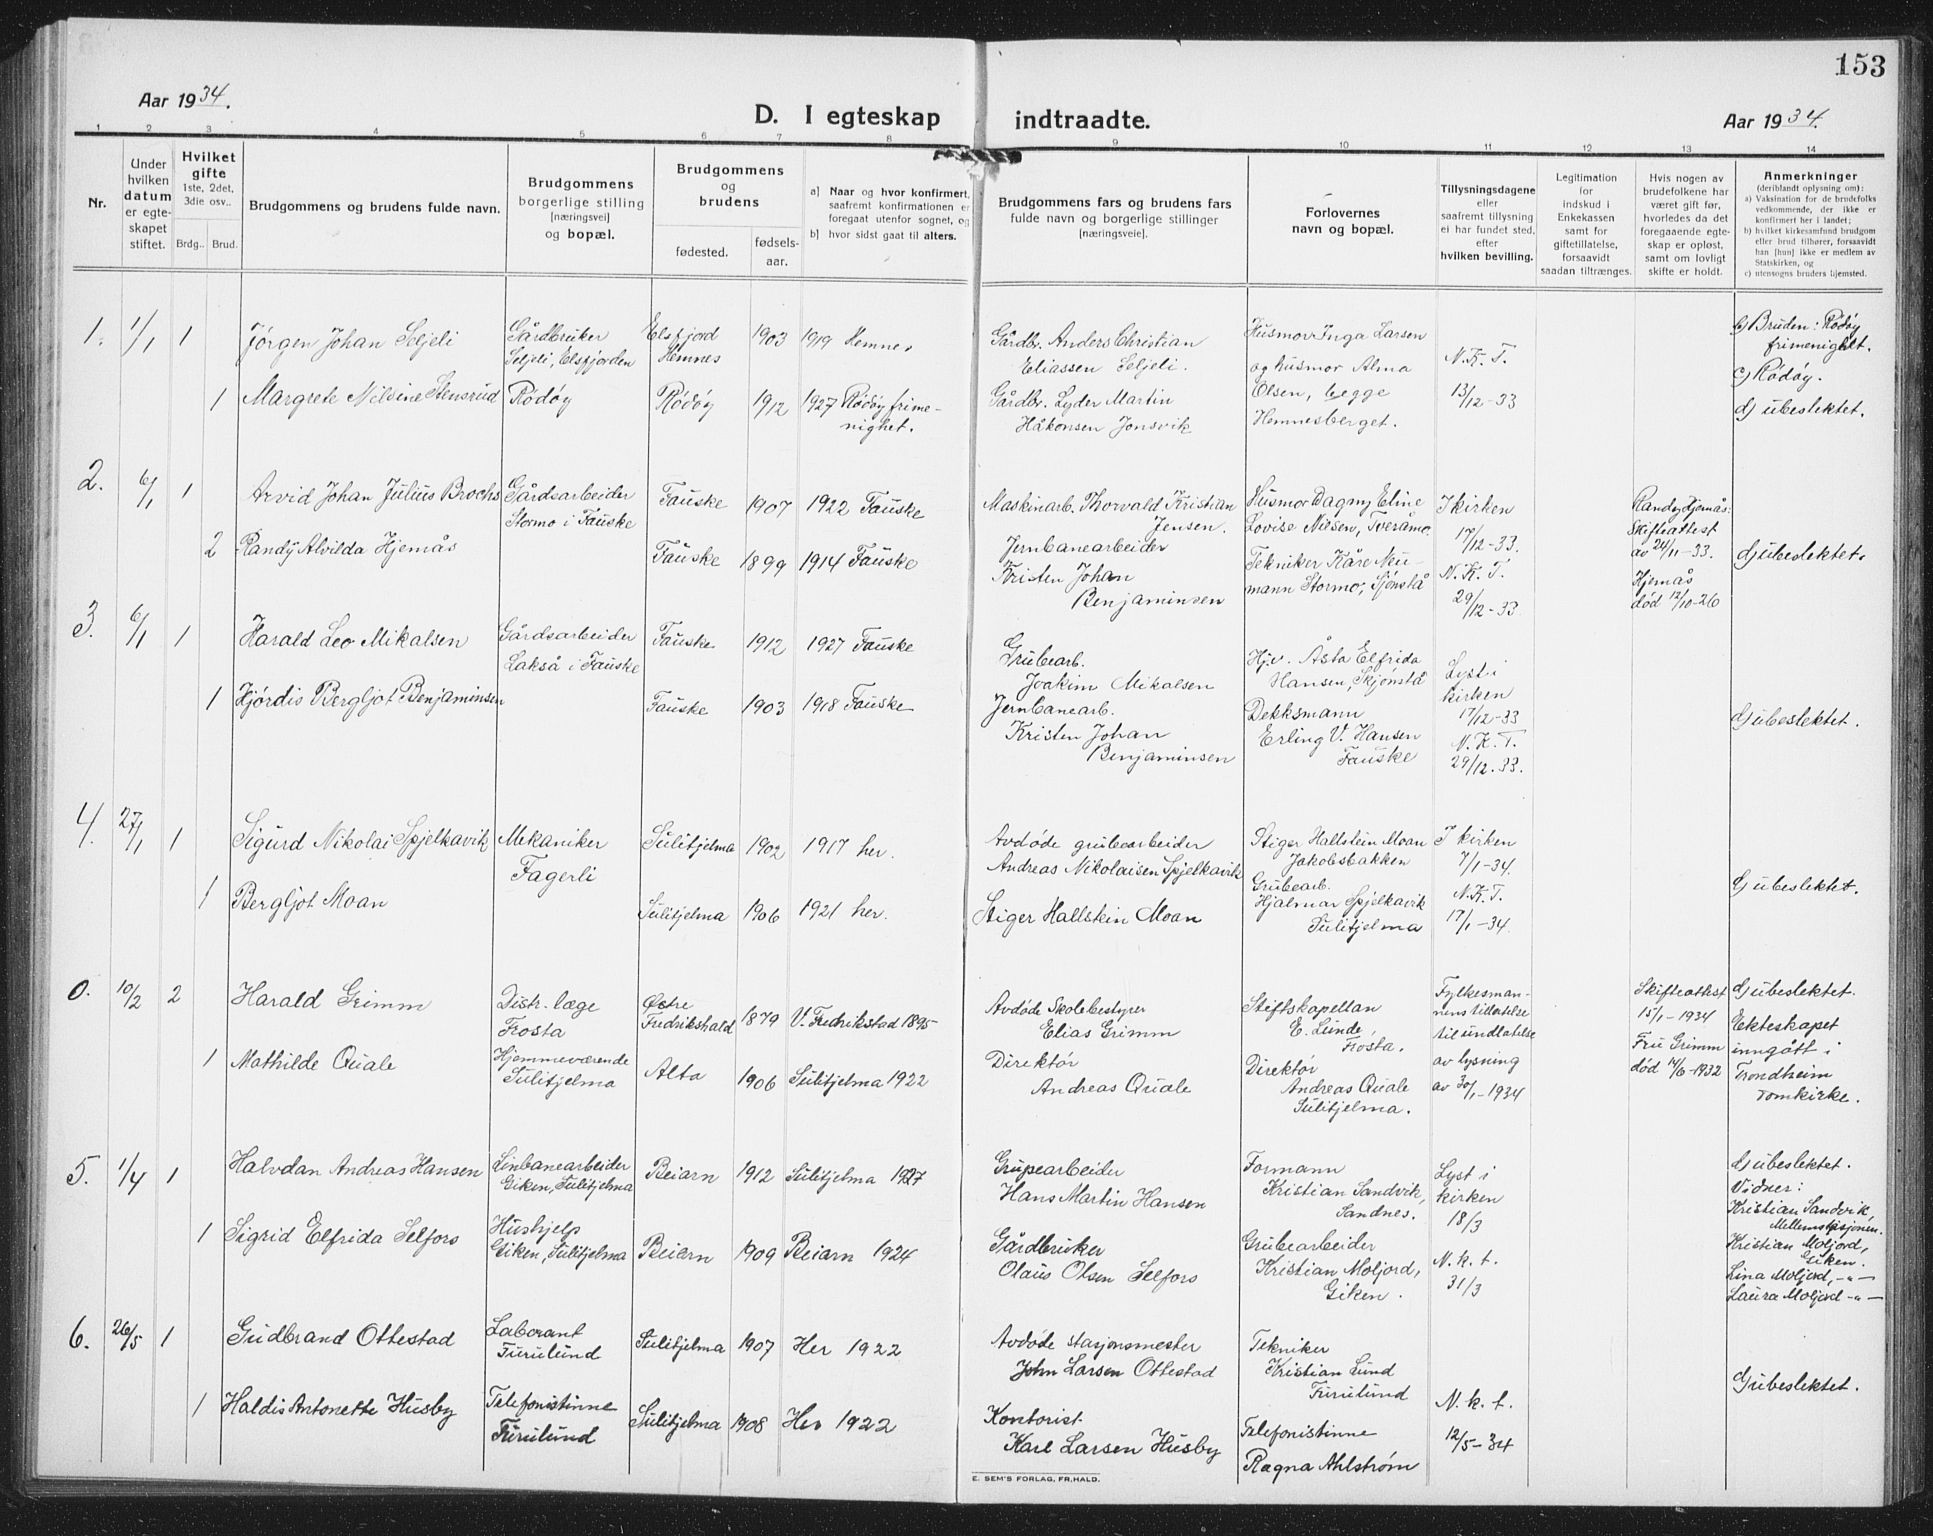 153
Aar 1934.
D. I egteskap indtraadte.
Aar 1934.
1 2 3 4 5 6 7 8 9 10 11 12 13 14
Nr.
Under hvilken datum er egteskapet stiftet.
Hvilket gifte
1ste, 2det, 3die osv..
Brdg.. Brud.
Brudgommens og brudens fulde navn.
Brudgommens borgerlige stilling [næringsvei] og bopæl.
Brudgommens og brudens
fødested. fødsels-aar.
a] Naar og hvor konfirmert, saafremt konfirmationen er foregaat utenfor sognet, og
b] hvor sidst gaat til alters.
Brudgommens fars og brudens fars fulde navn og borgerlige stillinger [næringsveie].
Forlovernes navn og bopæl.
Tillysningsdagene eller saafremt tillysning ei har fundet sted, efter hvilken bevilling.
Legitimation for indskud i Enkekassen samt for giftetillatelse, forsaavidt saadan tiltrænges.
Hvis nogen av brudefolkene har været gift før, hvorledes da det foregaaende egteskap er opløst, samt om lovligt skifte er holdt.
Anmerkninger
(deriblandt oplysning om):
a) Vaksination for de brudefolks vedkommende, der ikke er konfirmert her i landet;
b) hvilket kirkesamfund brudgom eller brud tilhører, forsaavidt han [hun] ikke er medlem av Statskirken, og
c) utensogns bruders hjemsted.
1. 1/1 1 Jørgen Johan Seljeli
Gårdbruker
Seljeli, Elsfjorden
Elsfjord
Hemnes
1903 1919 Hemnes
Gårdbr. Anders Christian
Eliassen Seljeli.
Husmor Inga Larsen
og husmor Alma
Olsen, begge
Hemnesberget.
N.K.T.
13/12-33
b) Bruden: Rödöy
frimenighet.
c) Rödöy.
d) ubeslektet.
1 Margrete Nilsine Stensrud
Rödöy
Rödöy 1912 1927 Rödöy frime-
nighet.
Gårdbr. Lyder Martin
Håkonsen Jonsvik
2. 6/1 1 Arvid Johan Julius Brochs
Gårdsarbeider
Stormo i Fauske
Fauske 1907 1922 Fauske
Maskinarb. Thorvald Kristian
Jensen.
Husmor Dagny Eline
Lovise Nilsen, Tveråmo.
Tekniker Kåre Neu-
mann Stormo, Sjönstå
I kirken
17/12-33.
N.K.T.
29/12-33
Randy Hjemås:
Skifteattest
av 24/11-33.
Hjemås
död 12/10-26
2 Randy Alvilda Hjemås
Fauske 1899 1914 Fauske
Jernbanearbeider
Kristen Johan
Benjaminsen
d) ubeslektet.
3. 6/1 1 Harald Leo Mikalsen
Gårdsarbeider
Lakså i Fauske
Fauske 1912 1927 Fauske
Grubearb.
Joakim Mikalsen
Hjv. Åsta Elfrida
Hansen, Skjönstå
Dekksmann
Erling V. Hansen
Fauske
Lyst i
kirken
17/12-33
N.K.T.
29/12.33.
1 Hjördis Bergljot Benjaminsen
Fauske 1903 1918 Fauske
Jernbanearb.
Kristen Johan
Benjaminsen
d) ubeslektet.
4. 27/1 1 Sigurd Nikolai Spjelkavik
Mekaniker
Fagerli
Sulitjelma 1902 1917 her.
Avdöde grubearbeider
Andreas Nikolaisen Spjelkavik
Stiger Hallstein Moan
Jakobsbakken
Grubearb.
Hjalmar Spjelkavik
Sulitjelma
I kirken
7/1-34.
N.K.T.
17/1-34.
1 Bergljot Moan
Sulitjelma 1906 1921 her.
Stiger Hallstein Moan
d) ubeslektet.
0. 10/2 2 Harald Grimm
Distr. læge
Frosta
Østre
Fredrikshald
1879 V. Fredrikstad 1895
Avdöde Skolebestyrer
Elias Grimm
Stiftskapellan
E. Lunde,
Frosta.
Direktör
Andreas Quale
Sulitjelma.
Fylkesman-
nens tillatelse
til undlatelse
av lysning
av 30/1-1934
Skifteattest
15/1-1934
Fru Grimm
död 14/6-1932
d) ubeslektet.
Ekteskapet
inngått i
Trondheim
domkirke.
1 Mathilde Quale
Hjemmeværende
Sulitjelma
Alta 1906 Sulitjelma 1922
Direktör
Andreas Quale
5. 1/4 1 Halvdan Andreas Hansen
Linbanearbeider
Giken, Sulitjelma
Beiarn 1912 Sulitjelma 1927
Grupearbeider
Hans Martin Hansen
Formann
Kristian Sandvik,
Sandnes.
Grubearbeider
Kristian Moljord,
Giken.
Lyst i
kirken
18/3
N.k.t.
31/3
d) ubeslektet.
Vidner:
Kristian Sandvik,
Mellemstasjonen.
Kristian Moljord,
Giken.
Lina Moljord, -"-
Laura Moljord -"-
1 Sigrid Elfrida Selfors
Hushjelp
Giken, Sulitjelma
Beiarn 1909 Beiarn 1924
Gårdbruker
Olaus Olsen Selfors
6. 26/5 1 Gudbrand Ottestad
Laborant
Furulund
Sulitjelma 1907 Her 1922
Avdöde stasjonsmester
John Larsen Ottestad
Tekniker
Kristian Lund
Furulund
Telefonistinne
Ragna Ahlström
N.k.t.
12/5-34
d) ubeslektet.
1 Haldis Antonette Husby
Telefonistinne
Furulund
Sulitjelma 1908 Her 1922
Kontorist
Karl Larsen Husby
E. SEM'S FORLAG, FR.HALD.